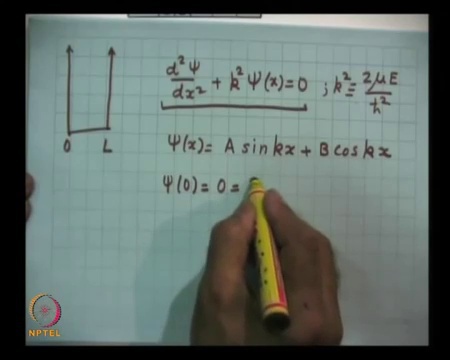 d²Ψ/dx² + k²Ψ(x)=0 ; k² = 2μE/ħ²
Ψ(x) = A sin kx + B cos kx
0 L
Ψ(0) = 0 =
NPTEL